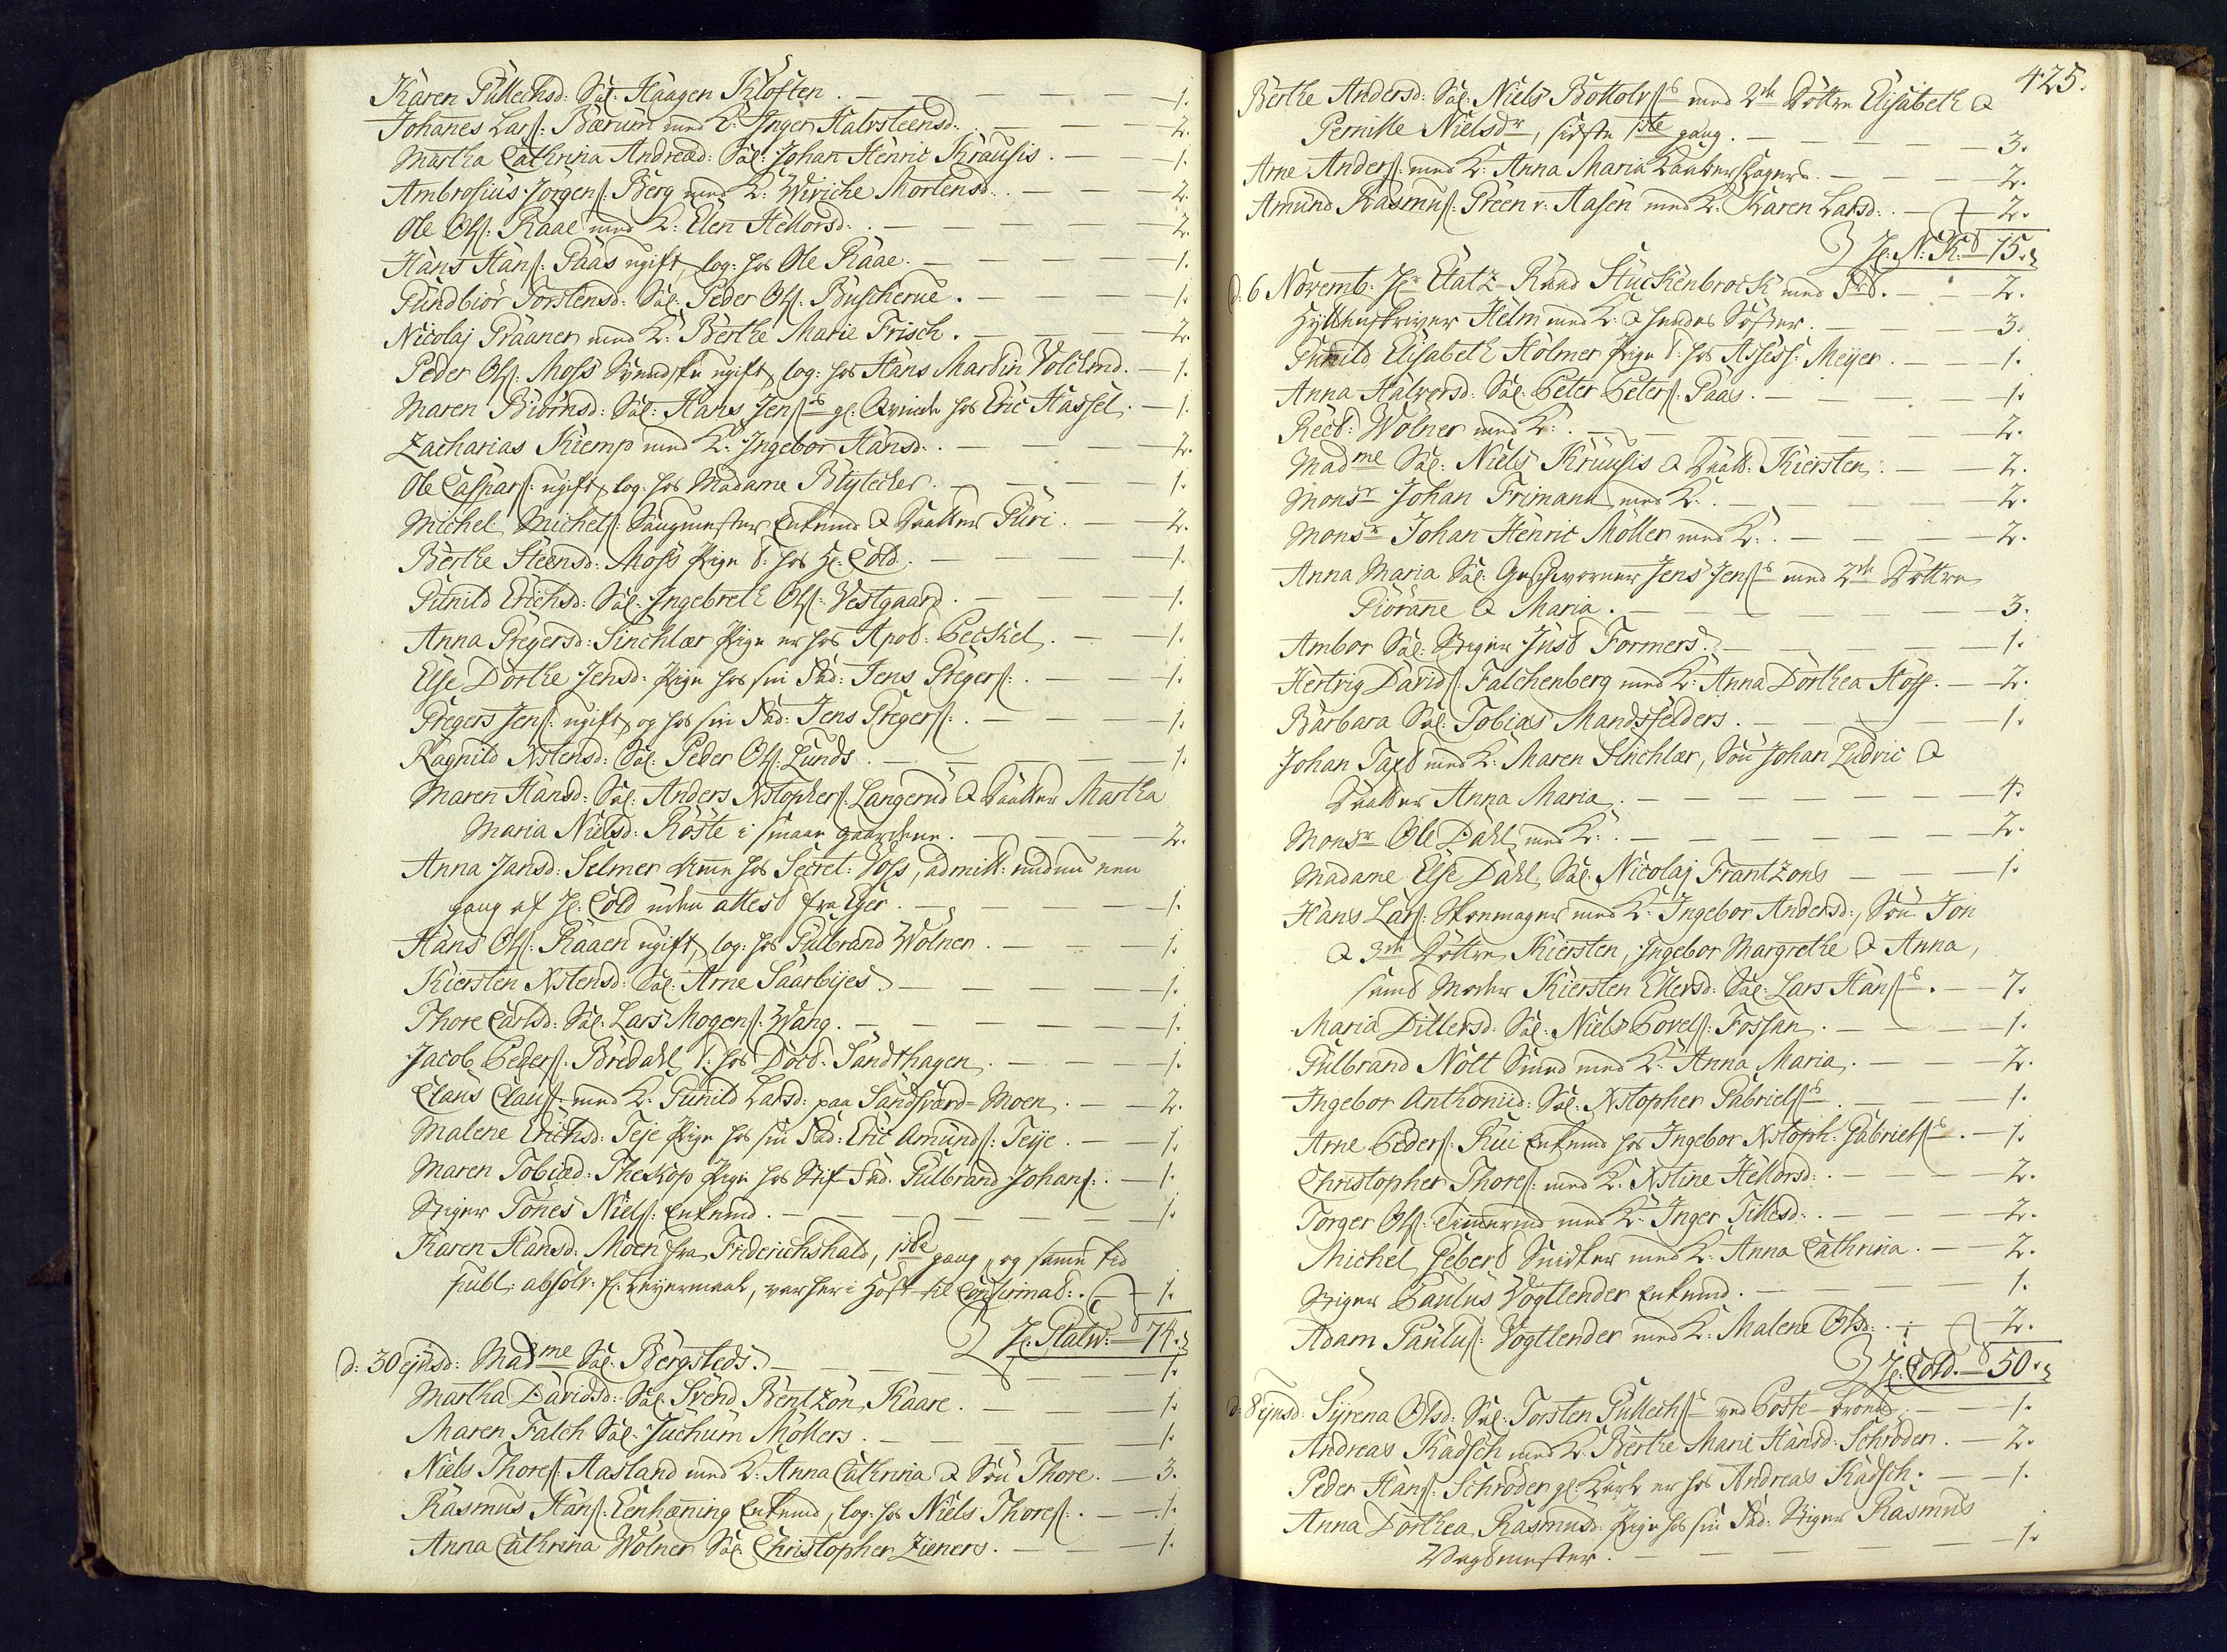 Karen Gullechsd: Sal: Haagen Kloften. 1.
Johanes Lars: Bærum med K: Inger Halvsteensd: 2.
Martha Cathrina Andread: Sal: Johan Henric Krausis. 1.
Ambrosius Jörgens: Berg med K: Wiriche Mortensd. 2.
Ole Ols: Raae med K: Elen Hellorsd: 2.
Hans Hans: Paas ugift, log: hos Ole Raae. 1.
Gundbiör Torstensd: Sal: Peder Ols: Buskerue. 1.
Nicolaj Graaner med K: Berthe Marie Frisch. 2.
Peder Ols: Moss Svendske ugift, log: hos Hans Martin Volckmd. 1.
Maren Biörnsd: Sal: Hans Jens: gl: Qvinde hos Eric Hassel. 1.
Zacharias Kiemp med K: Ingebor Hansd: 2.
Ole Caspars: ugift, log: hos Madame Blytecher. 1.
Michel Michels: Saugmester Enkemd & Daatter Guri. 2.
Berthe Steensd: Moss Pige t: hos Hr: Cold. 1.
Gunild Erichsd: Sal: Ingebreth Ols: Vestgaard. 1.
Anna Gregersd: Sinchlar Pige er hos Apot: Peckel. 1.
Else Dorthe Jensd: Pige hos sin Fad: Jens Gregers: 1.
Gregers Jens: ugift, og hos sin Fad: Jens Gregers: 1.
Ragnild Nstensd: Sal: Peder Ols: Lunds. 1.
Maren Hansd: Sal: Anders Xstophers: Langerud & Daatter Martha
Maria Nielsd: Röste i smaae gaardene. 2.
Anna Jansd: Selmer Ame hos Secret: Voss, admitt: endnu een
gang af Hr: Cold uden attest fra Eger. 1.
Hans Ols: Raaen ugift, log: hos Gulbrand Wölner. 1.
Kiersten Xstensd: Sal: Arne Saarbyes. 1.
Thore Carlsd: Sal: Lars Mogens: Wang. 1.
Jacob Peders: Bredahl t: hos Doct: Sandthagen. 1.
Claus Claus: med K: Gunild Larsd: paa Sandsværd-Moen. 2.
Malene Erichsd: Teje Pige hos sin Fad: Eric Amunds: Teije. 1.
Maren Tobiæd: Theskop Pige hos Stif-Fad: Gulbrand Johans: 1.
Stiger Tönes Niels: Enkemd. 1.
Karen Hansd: Moen fra Friderichshald, 1ste gang, og samme tid
publ: absolv: for Leyermaal, var her i Höst til Confirmat: 1.
Hr: Stalw: 74.
d: 30 ejusd: Madme Sal: Bergsteds. 1.
Martha Davidsd: Sal: Svend Bentzon Kaare. 1.
Maren Falch Sal: Juchum Möllers. 1.
Niels Thores: Aasland med K: Anna Cathrina & Sön Thore. 3.
Rasmus Hans: Eenhæning Enkemd, log: hos Niels Thores: 1.
Anna Cathrina Wölner Sal: Christopher Zieners. 1.
425.
Berthe Andersd: Sal: Niels Bottolvs: med 2de Döttre Elisabeth &
Pernille Nielsdr, sidste 1ste gang. 3.
Arne Anders: med K: Anna Maria 2.
Amund Rasmus: Green v: Aasen med K: Karen Larsd: 2.
Hr: N: K: 15.
d: 6 Novemb: Hr: Etatz-Raad Stuckenbrock med 2.
Hyttskriver Helm med K: & hendes Söster. 3.
Gunild Elisabeth Holmer Pige t: hos Assess: Meyer. 1.
Anna Halvorsd: Sal: Peter Peters: Paas. 1.
Rect: Wölner med K: 2.
Madme Sal: Niels Kruusis & Daatt: Kiersten. 2.
Monsr Johan Frimann med K: 2.
Monsr Johan Henric Möller med K: 2.
Anna Maria Sal: Geschworner Jens Jens: med 2de Döttre
Giörane & Maria. 3.
Ambor Sal: Stiger Just Formers. 1.
Hertvig Davids: Falchenberg med K: Anna Dorthea Hoff. 2.
Barbara Sal: Tobias Mandsfelders. 1.
Johan Taxt med K: Maren Sinchlar, Sön Johan Ludvic &
Daatter Anna Maria. 4.
Monsr Ole Dahl med K: 2.
Madame Else Dahl Sal: Nicolaj Frantzons 1.
Hans Lars: Skomager med K: Ingebor Andersd:, Sön Jon
& 3de Döttre Kiersten, Ingebor Margrethe & Anna,
samt Moder Kiersten Ellersd: Sal: Lars Hans: 7.
Maria Ditlersd: Sal: Niels Povels: Fossen. 1.
Gulbrand Nolt Smed med K: Anna Maria. 2.
Ingebor Anthonid: Sal: Xstopher Gabriels: 1.
Arne Peders: Rui Enkemd hos Ingebor Xstoph: Gabriels: 1.
Christopher Thores: med K: Xstine Hellorsd: 2.
Torger Ols: Timmermd med K: Inger Tillesd: 2.
Michel Gebert Snidker med K: Anna Cathrina. 2.
Stiger Paulus Vogtlender Enkemd. 1.
Adam Paulus: Vogtlender med K: Malene Olsd: 2.
Hr: Cold. 50.
d: 8 ejusd: Syrena Olsd: Sal: Torsten Gullechs: ved Poste-brönd. 1.
Andreas Radsch med K: Berthe Marie Hansd: Schröder. 2.
Peder Hans: Schröder gl: Karl er hos Andreas Radsch. 1.
Anna Dorthea Rasmusd: Pige hos sin Fad: Stiger Rasmus
Vagtmester. 1.